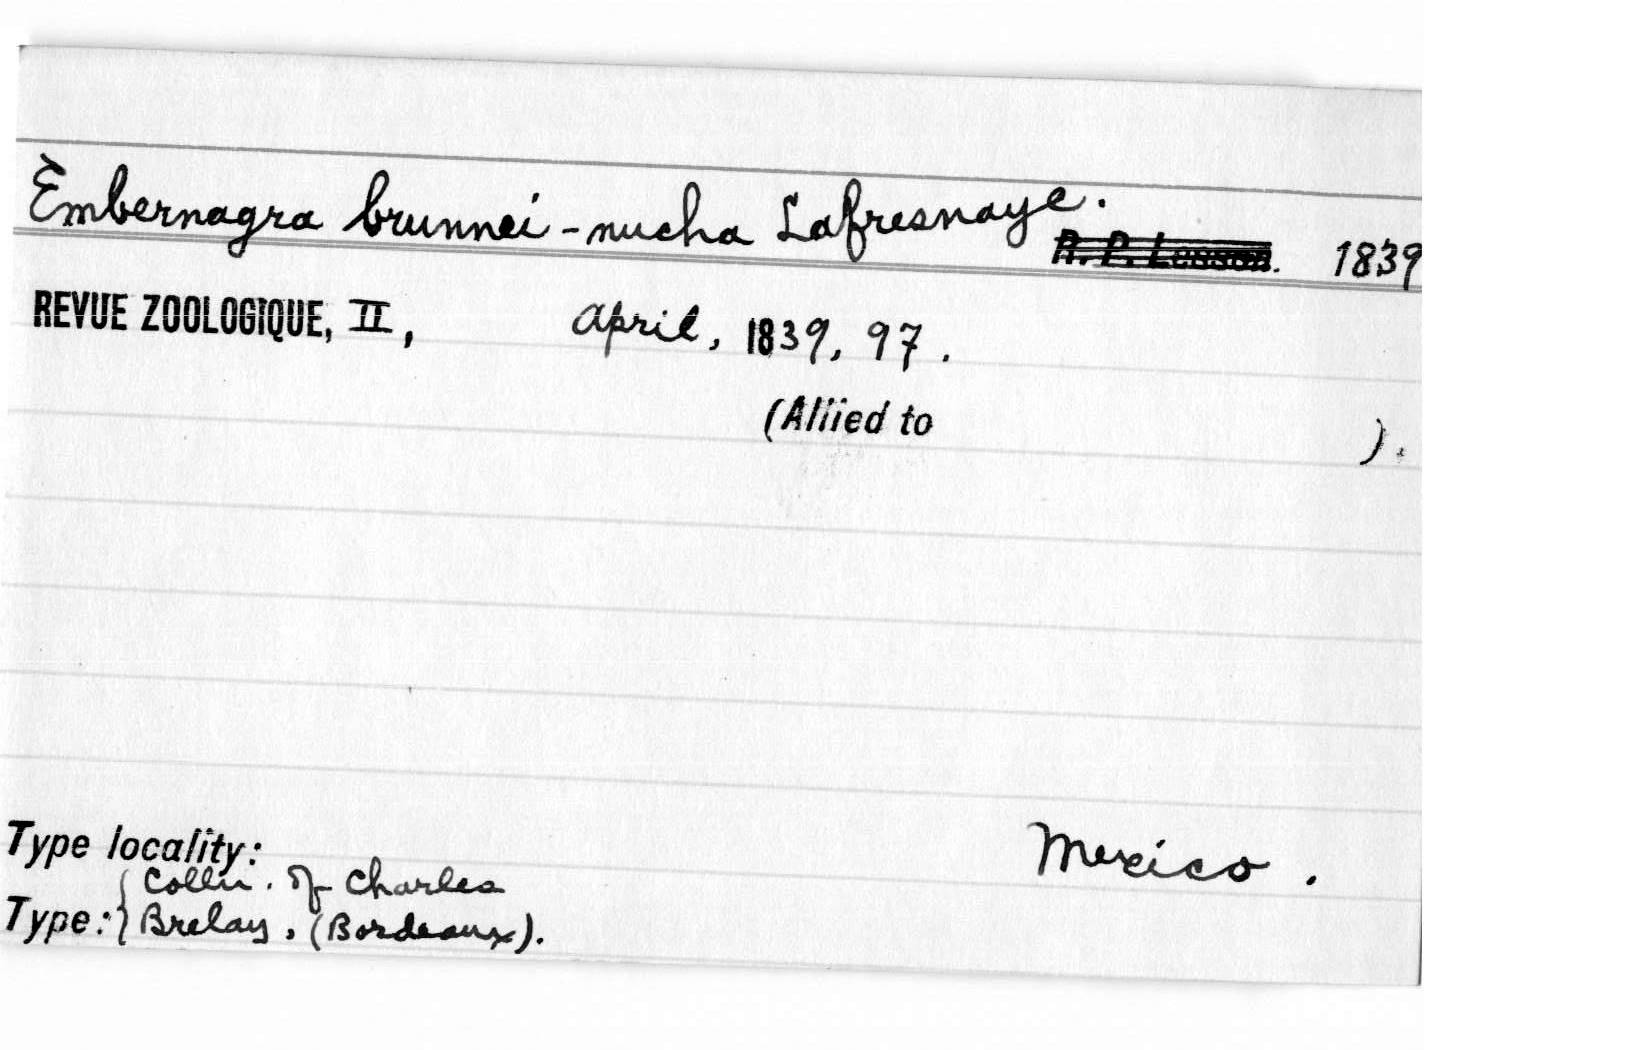 Embernagra brunnei-nucha Lafresnaye.
R. P. Lesson. 1839
REVUE ZOOLOGIQUE, II, April, 1839, 97.
(Allied to ).
Type locality: Mexico.
Colln. of Charles
Type: { Brelay, (Bordeaux).